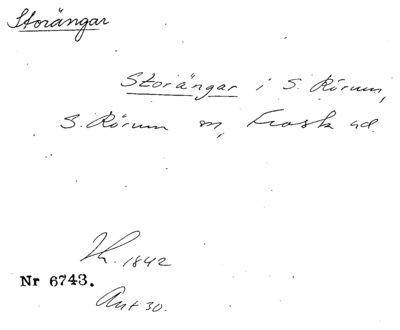 Storängar
Storängar i S. Rörum,
S. Rörum sn, Frosta hd.
1842
Nr 6743.
Ant 30.